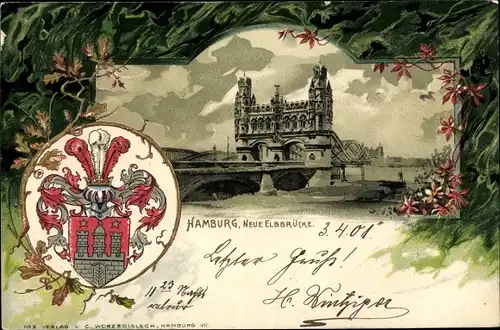 HAMBURG, NEUE ELBBRÜCKE.
3.4.01
Letzter Gruß!
11 23 Nachts
H.
No 2 VERLAG V. C. WORZEDIALECK, HAMBURG VII.